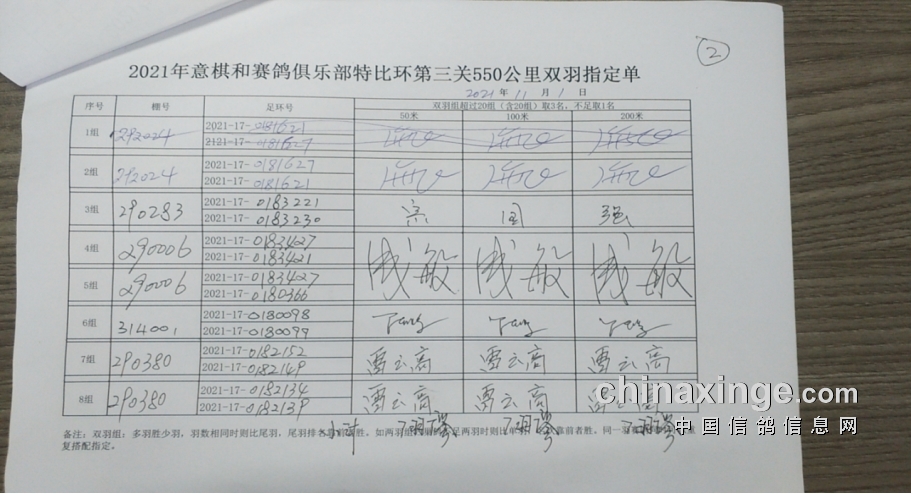 2
2021年意棋和赛鸽俱乐部特比环第三关550公里双羽指定单
2021 年 11 月 1 日
序号 棚号 足环号 双羽组超过20组（含20组）取3名，不足取1名
50米 100米 200米
1组 292024 2021-17-0181621
2121-17-0181627
2组 292024 2021-17-0181627
2021-17-0181621
3组 290283 2021-17-0183221 宗 国 强
2021-17-0183230
4组 290006 2021-17-0183427 成敏 成敏 成敏
2021-17-0183421
5组 290006 2021-17-0183427
2021-17-0180366
6组 314001 2021-17-0180098
2021-17-0180099
7组 290380 2021-17-0182152 雷云高 雷云高 雷云高
2021-17-0182149
8组 290380 2021-17-0182134 雷云高 雷云高
2021-17-0182139
小计
备注：双羽组：多羽胜少羽，羽数相同则比尾羽，尾羽排名靠前者胜。如两羽组
复搭配指定。
chinaxinge.com
中国信鸽信息网